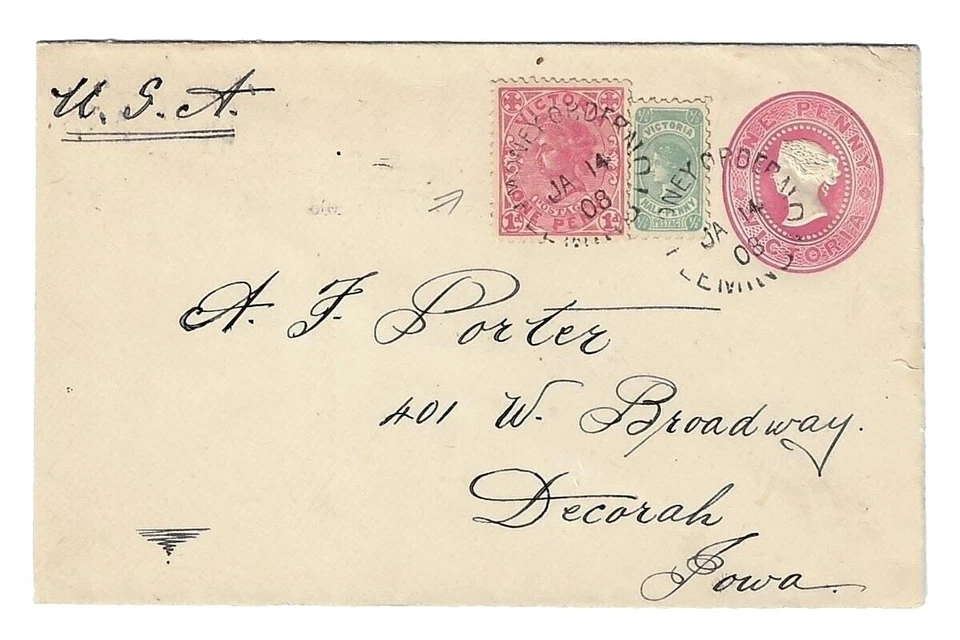 U. S. A.
VICTORIA
ONE PENNY
POSTAGE
1d
VICTORIA
HALFPENNY
POSTAGE
½ ½
ONE PENNY
VICTORIA
MONEY ORDER
JA 14
08
FLEMIN
MONEY ORDER
JA 14
08
FLEMIN
A. F. Porter
401 W. Broadway.
Decorah
Iowa.